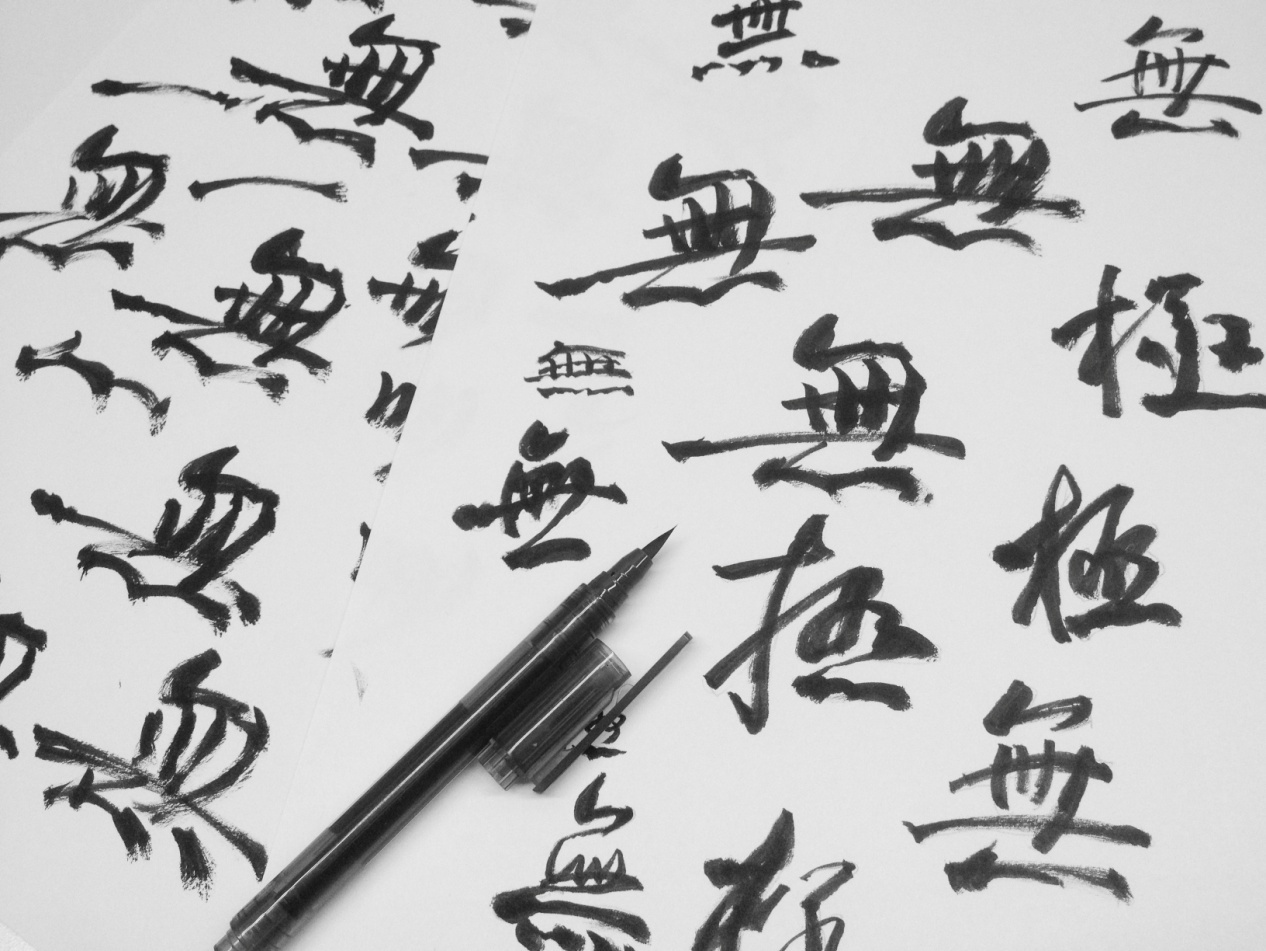 無
無
無
無
無
無
無
無
無
極
無
無
無
極
極
無
無